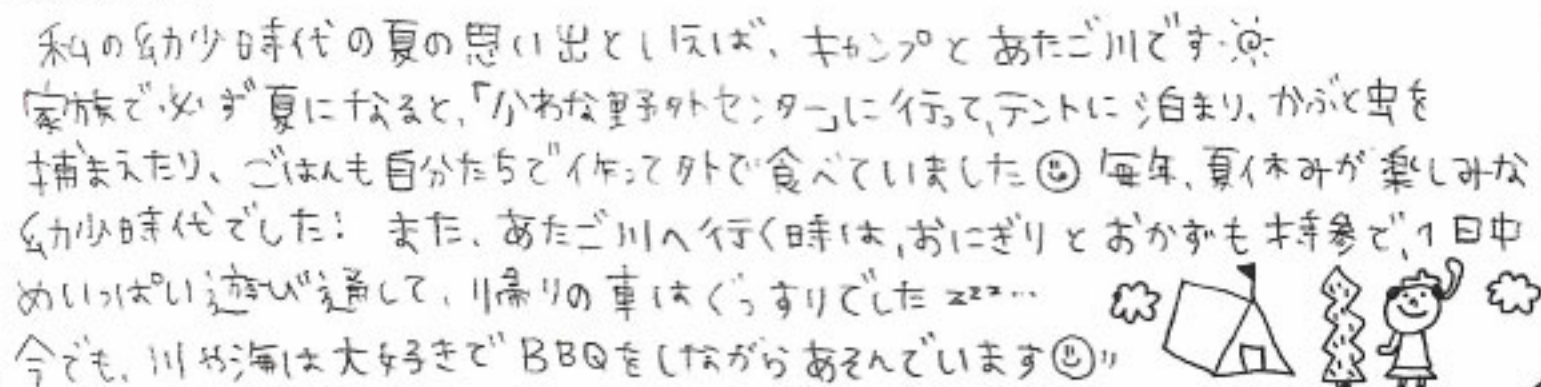 私の幼少時代の夏の思い出といえば、キャンプとあたご川です
家族で必ず夏になると、「かわな野外センター」に行って、テントに泊まり、かぶと虫を
捕まえたり、ごはんも自分たちで作って外で食べていました 毎年、夏休みが楽しみな
幼少時代でした! また、あたご川へ行く時は、おにぎりとおかずも持参で、1日中
めいっぱい遊び通して、帰りの車はぐっすりでした zzz…
今でも、川や海は大好きでBBQをしながらあそんでいます